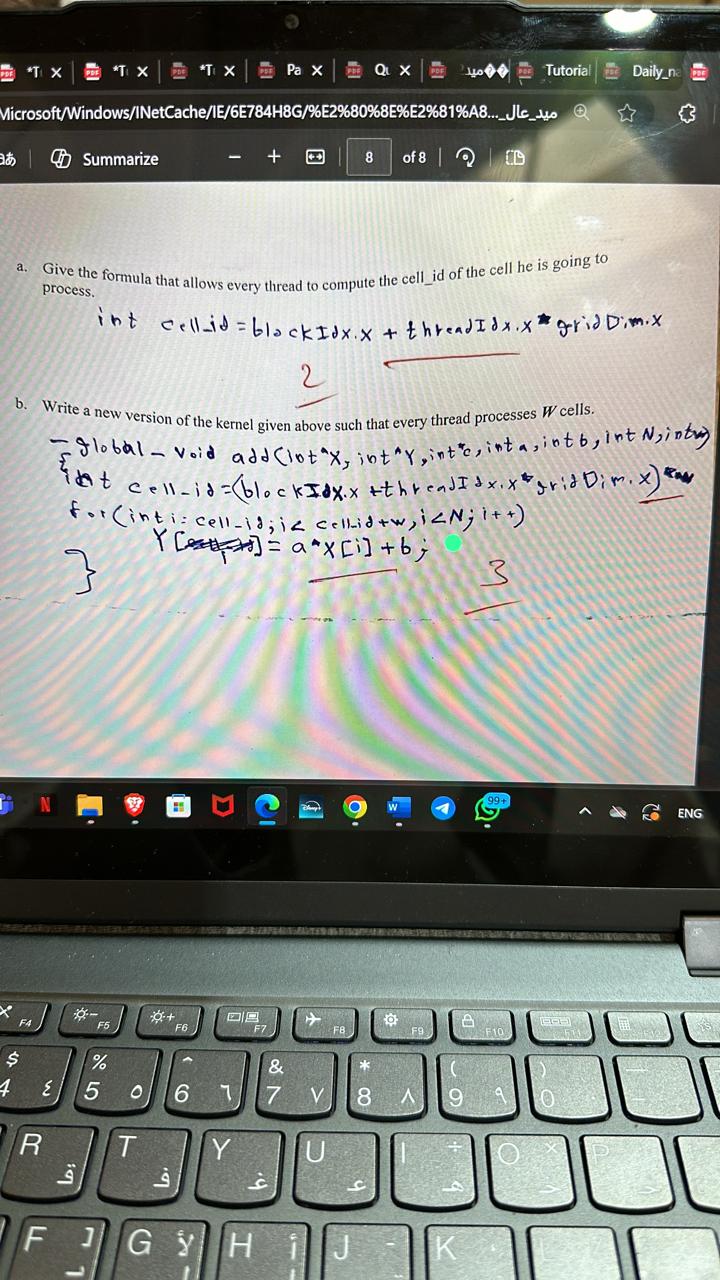 *T X *T X *T X Pa X Qu X Tutorial Daily_na
Microsoft/Windows/INetCache/IE/6E784H8G/%E2%80%8E%E2%81%A8..._ميد_عال
Summarize − + 8 of 8
a. Give the formula that allows every thread to compute the cell_id of the cell he is going to
process.
int cell_id = blockIdx.x + threadIdx.x * gridDim.x
2
b. Write a new version of the kernel given above such that every thread processes W cells.
_global_ void add(int*X, int*Y, int*c, int a, int b, int N, int w)
{int cell_id=(blockIdx.x + threadIdx.x * gridDim.x)*w
for(int i = cell_id; i< cell_id+w, i<N; i++)
Y[i] = a*X[i]+b;
}
3
99+
ENG
F4 F5 F6 F7 F8 F9 F10 F11
$ % ^ & * ( )
4 ٤ 5 ٥ 6 ٦ 7 ٧ 8 ٨ 9 ٩ 0
R ق T ف Y غ U ع I ÷ ه O × خ P ح
F [ ب G H أ J K